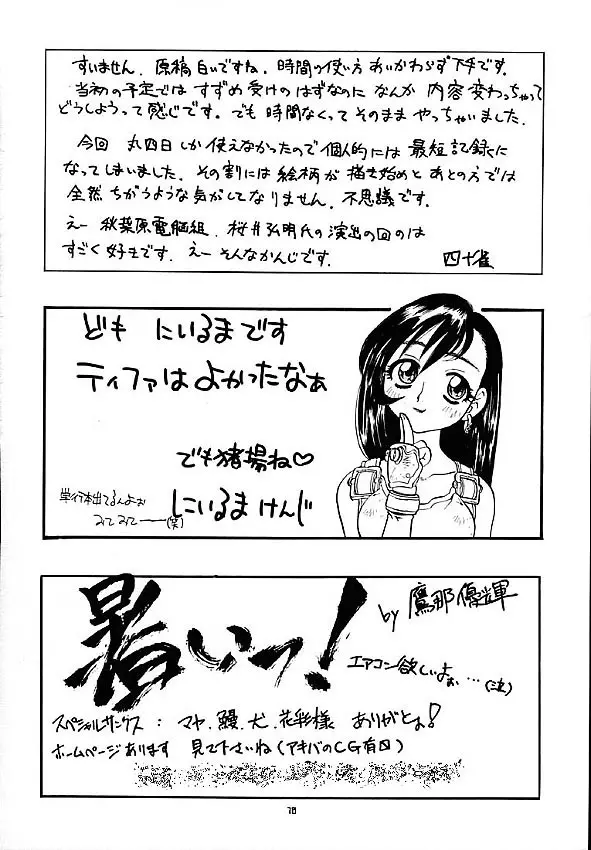 すいません、原稿白いですね、時間の使い方 あいかわらず下手です。
当初の予定では すずめ受けの はずなのに なんか 内容変わっちゃって
どうしようって感じです。でも 時間なくって そのまま やっちゃいました。
今回 丸四日 しか 使えなかったので個人的には 最短記録に
なってしまいました。その割には 絵柄が 描き始めと あとの方では
全然 ちがうような気がしてなりません。不思議です。
えー 秋葉原電脳組、桜井弘明氏の演出の回のは
すごく好きです。えー そんなかんじです。
四十雀
ども にいるまです
ティファは よかったなぁ
でも猪場ね♡
単行本出てるんよぉ
みてみてー(笑)
にいるま けんじ
暑いっ!
by 鷹那優輝
エアコン欲しいよぉ…(泣)
スペシャルサンクス: マヤ、鰻、犬、花彩様 ありがとぉ!
ホームページあります 見て下さいね(アキバのCG有口)
78